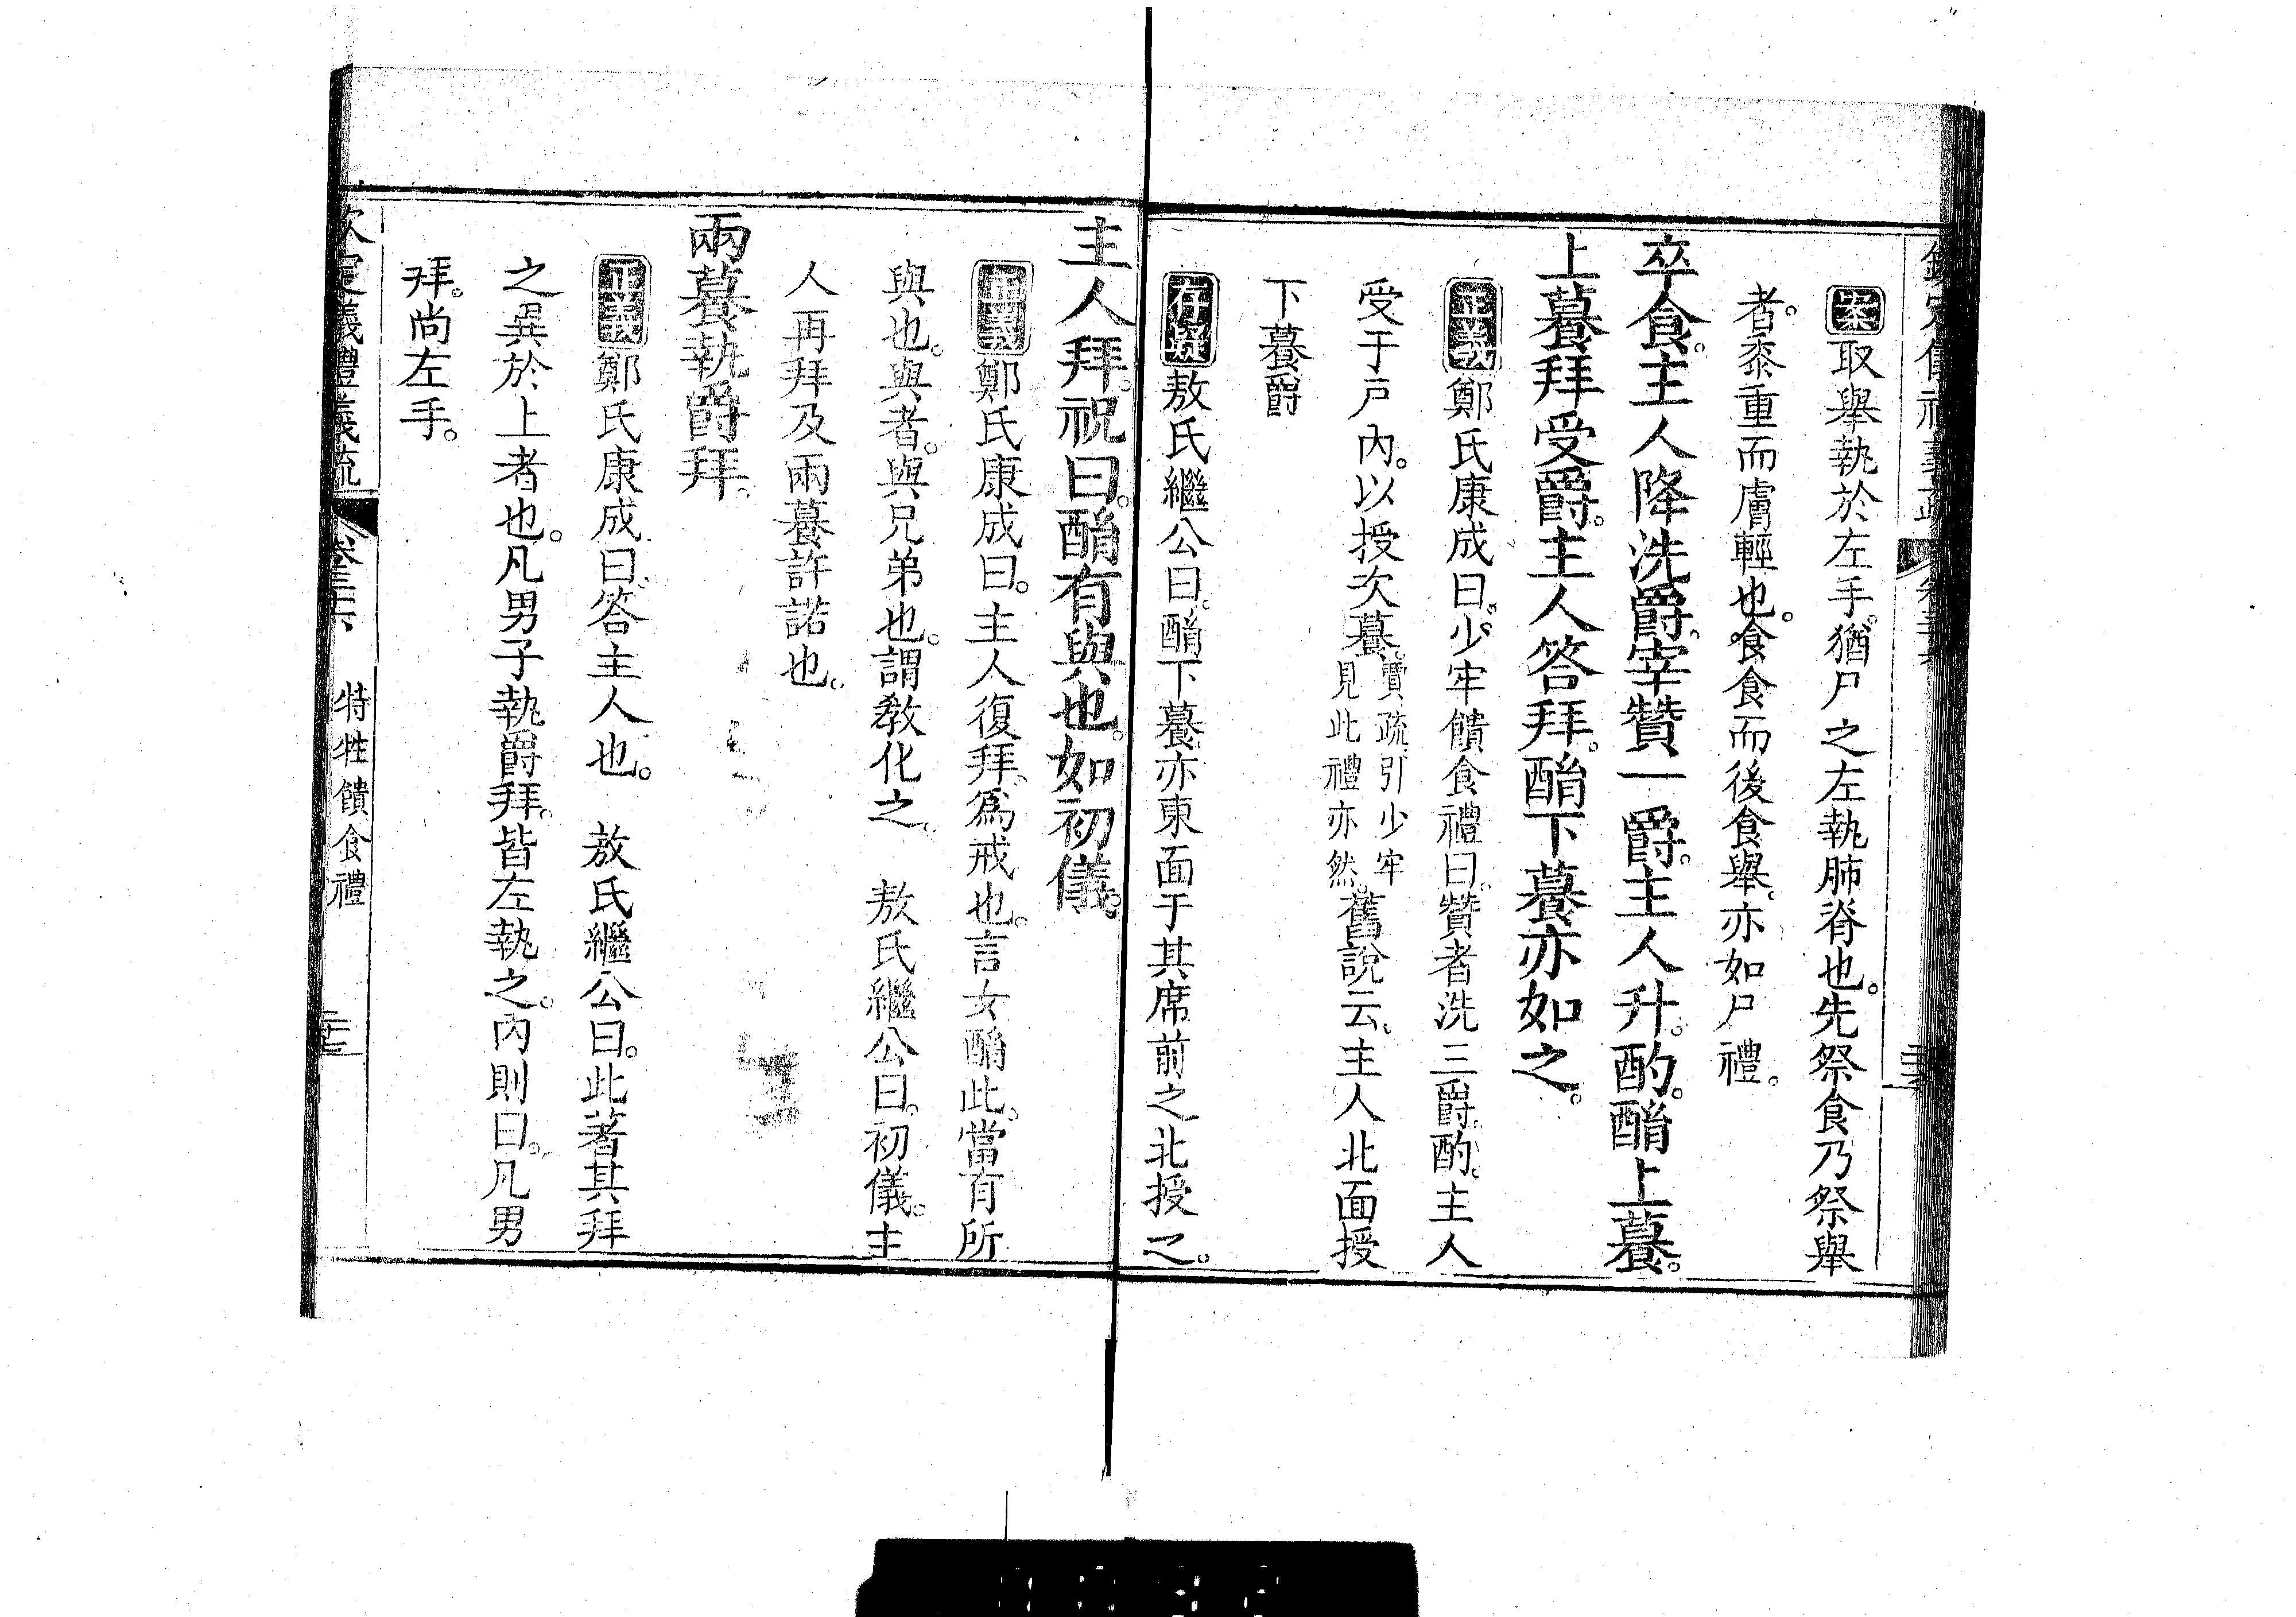 案取舉執於左手。猶尸之左執肺脊也。先祭食乃祭舉
者。黍重而膚輕也。食食而後食舉。亦如尸禮。
卒食。主人降洗爵。宰贊一爵。主人升。酌。酳上䉵。
上䉵拜受爵。主人答拜。酳下䉵亦如之。
正義鄭氏康成曰。少牢饋食禮曰。贊者洗三爵。酌。主人
受于戶內。以授次䉵。賈疏引少牢見此禮亦然。舊說云。主人北面授
下䉵爵
存疑敖氏繼公曰。酳下䉵亦東面于其席前之北授之。
主人拜。祝曰。酳有與也。如初儀。
正義鄭氏康成曰。主人復拜。爲戒也。言女酳此。當有所
與也。與者。與兄弟也。謂敎化之。 敖氏繼公曰。初儀。主
人再拜及兩䉵許諾也。
兩䉵執爵拜。
正義鄭氏康成曰。答主人也。 敖氏繼公曰。此著其拜
之異於上者也。凡男子執爵拜。皆左執之。內則曰。凡男
拜。尚左手。
欽定儀禮義疏 卷三十六 特牲饋食禮